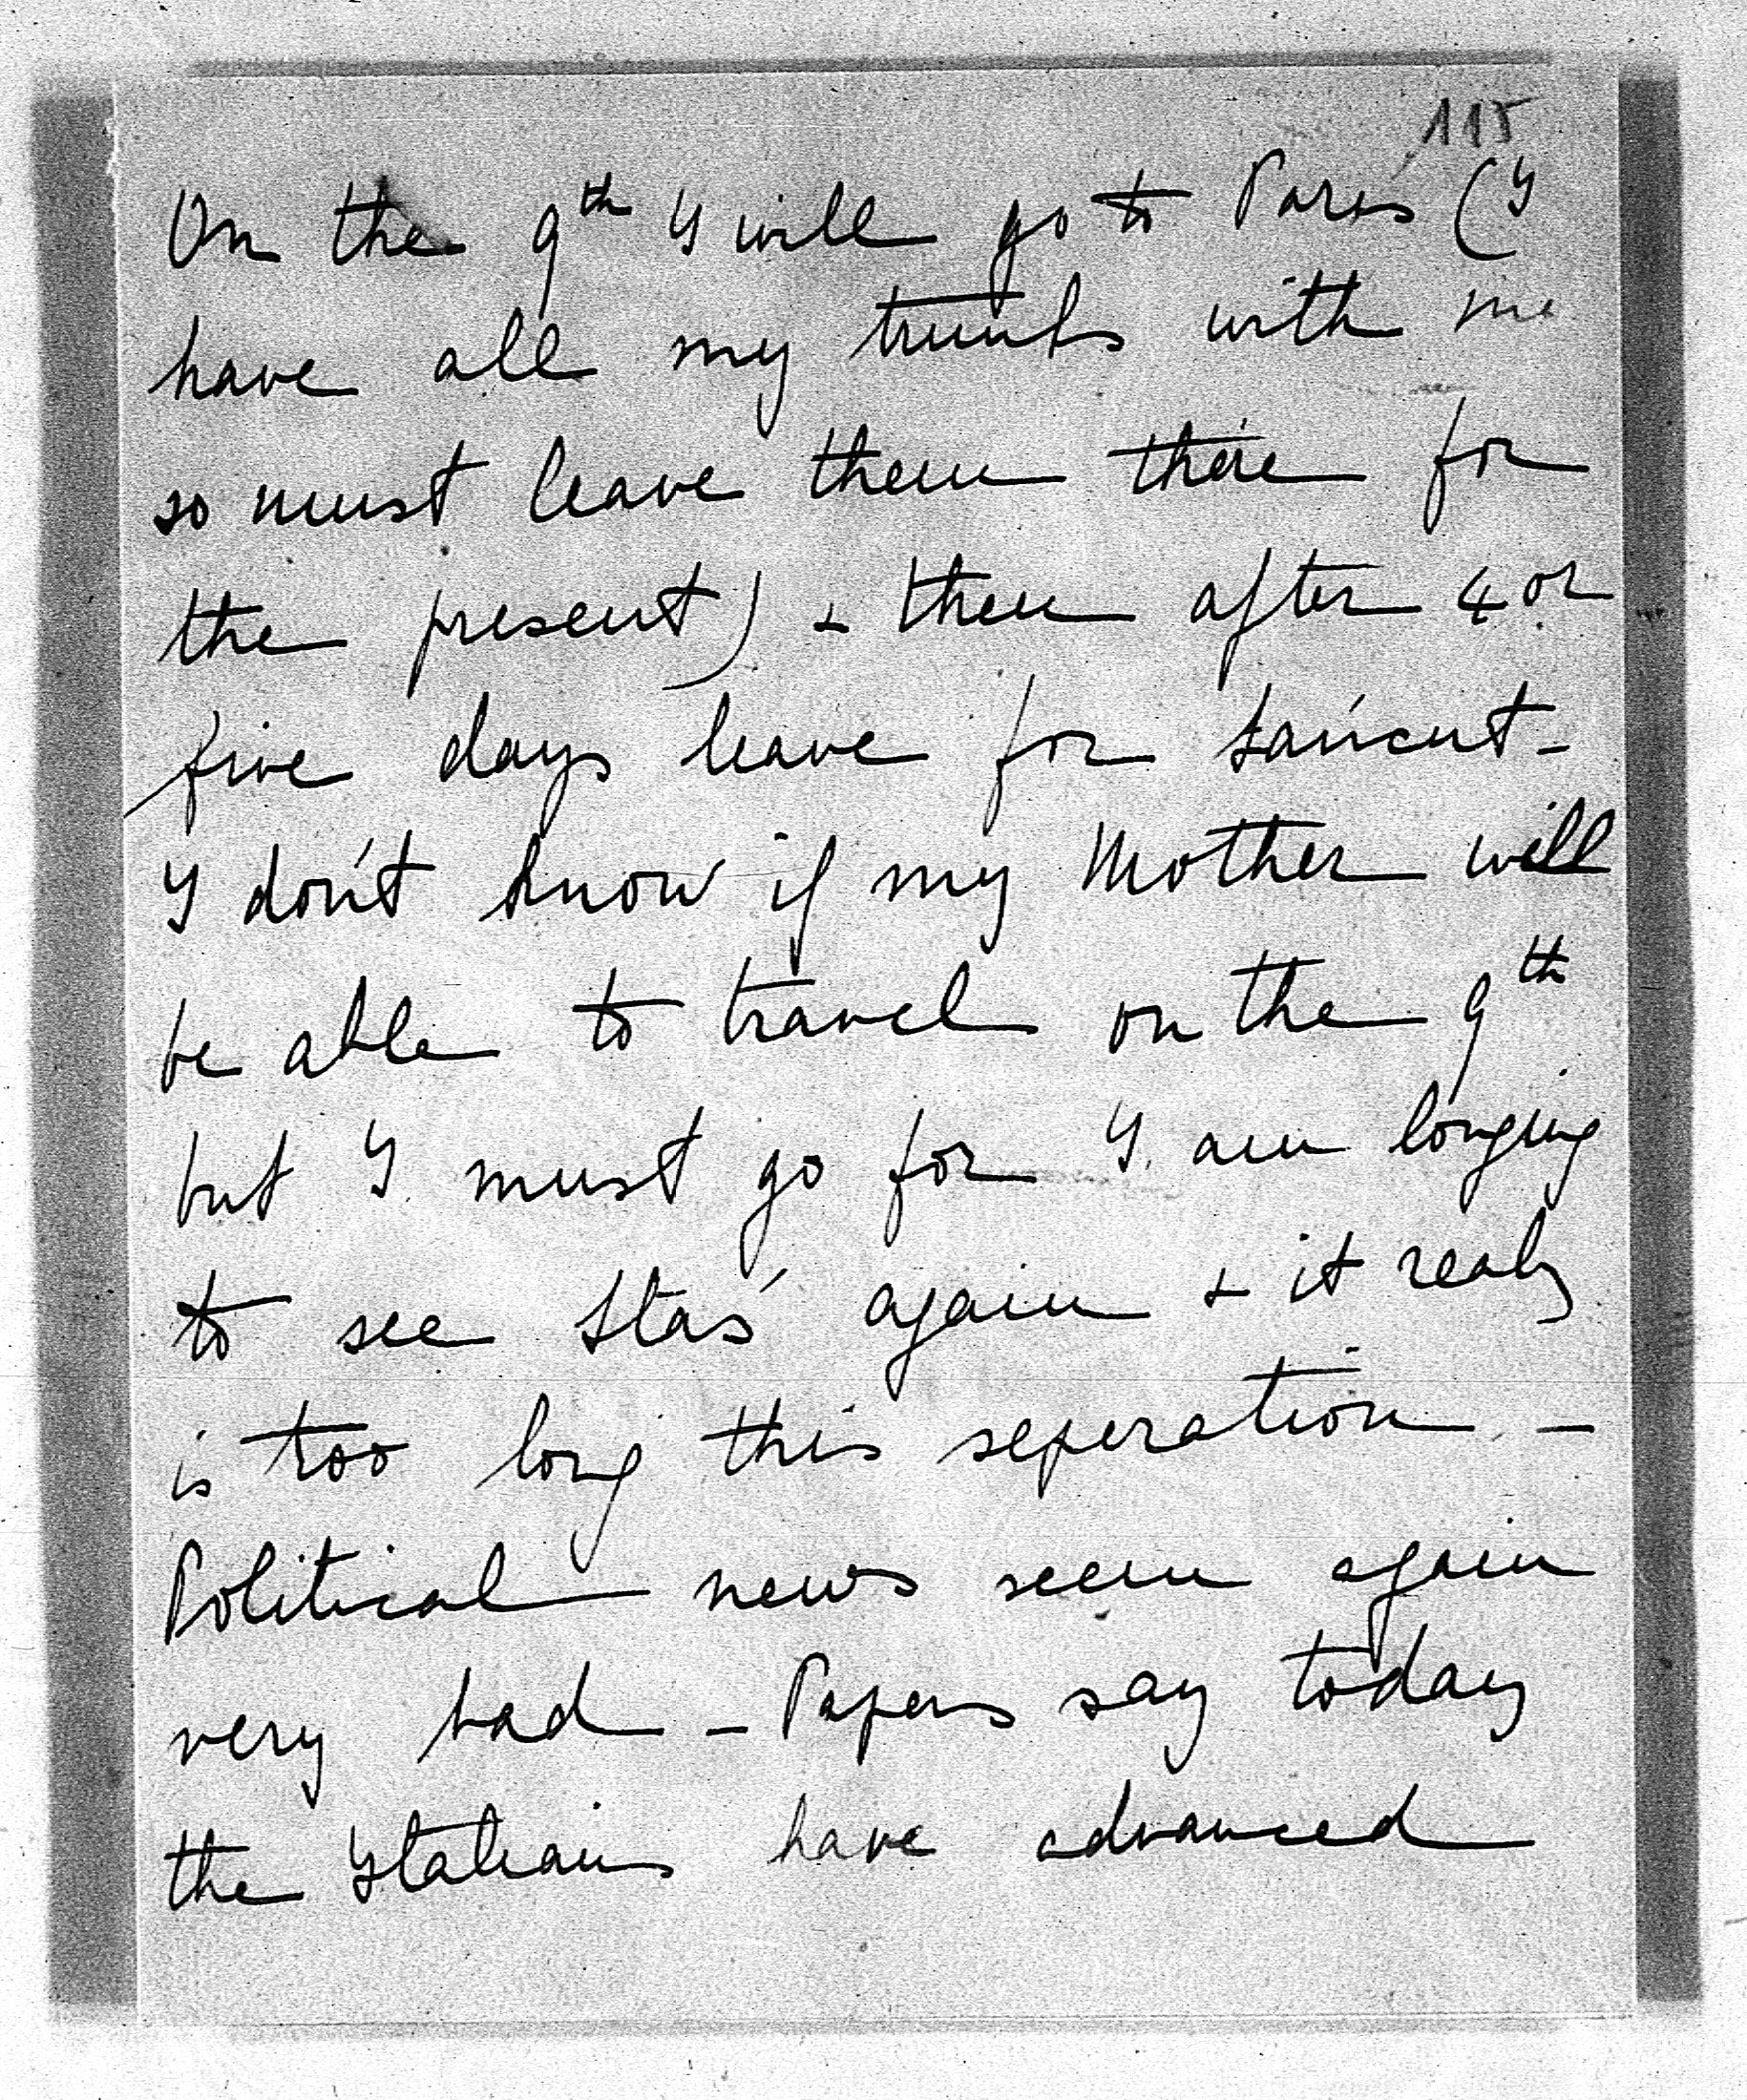 115
On the 9th I will go to Paris (I
have all my trunks with me
so must leave them there for
the present) + then after 4 or
five days leave for Łańcut -
I don't know if my Mother will
be able to travel on the 9th
but I must go for I am longing
to see Staś again + it realy
is too long this seperation -
Political news seem again
very bad - Papers say today
the Italians have advanced